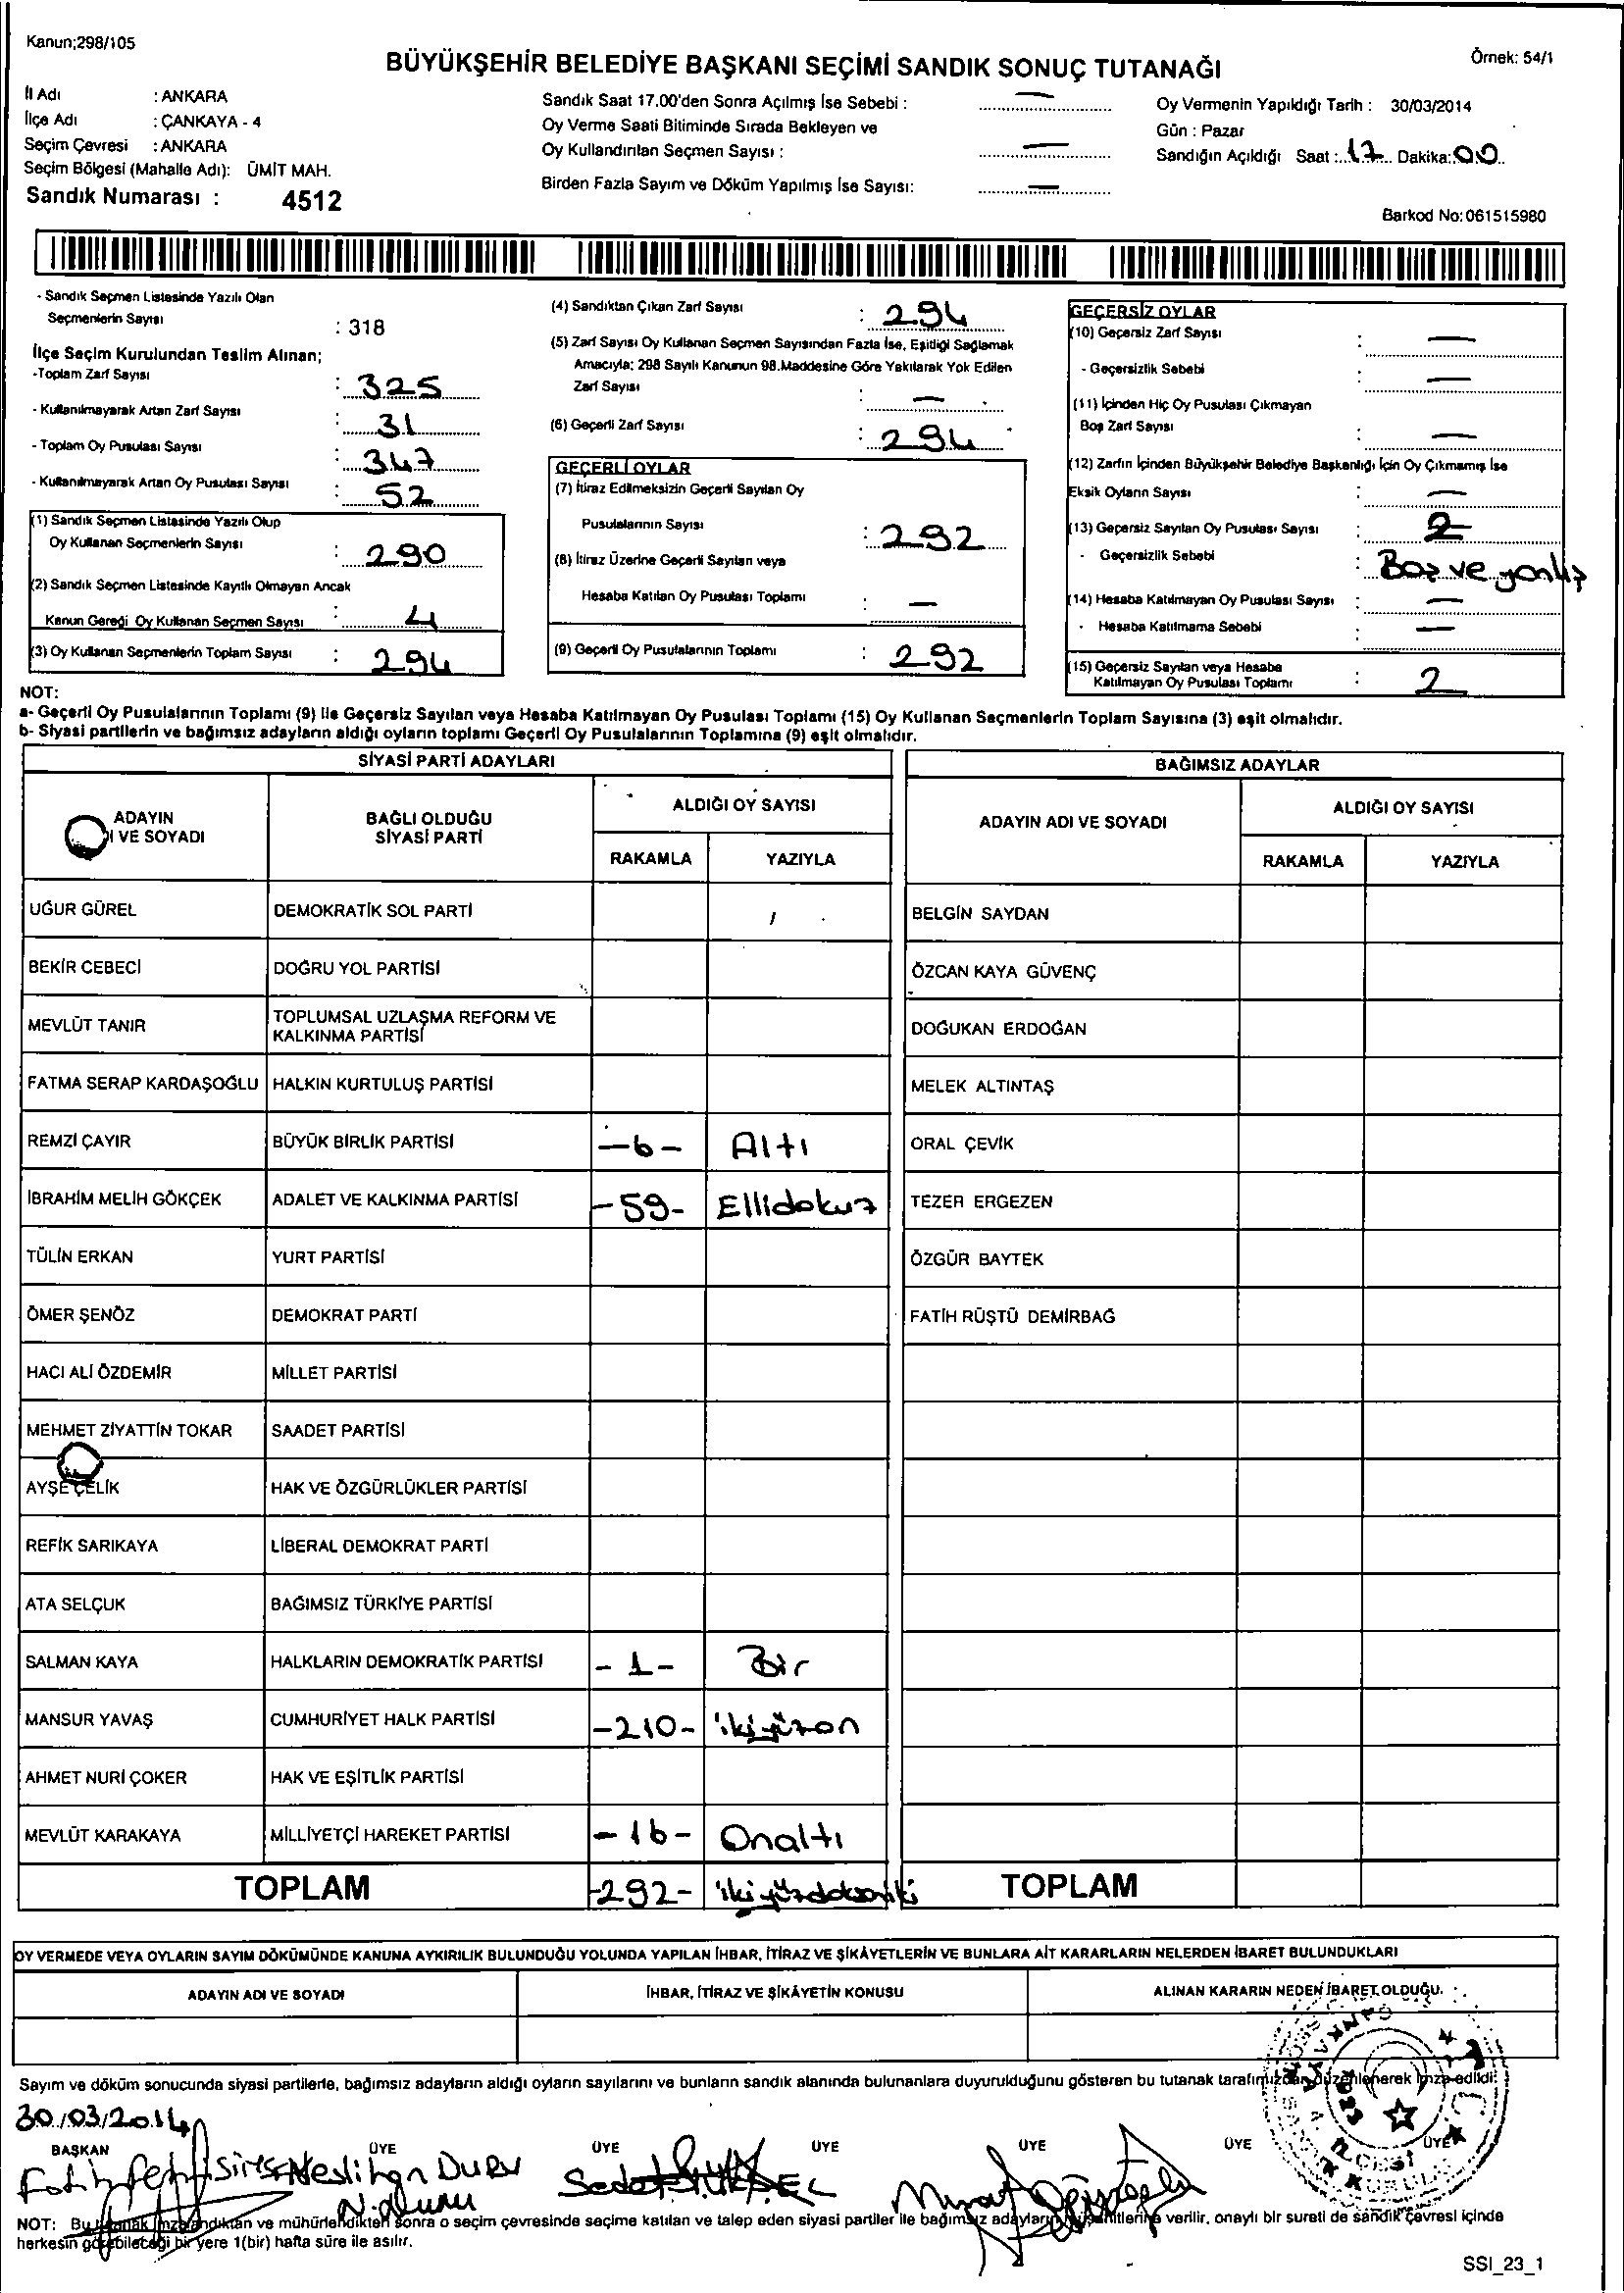 Kanun;298/105
Örnek: 54/1
BÜYÜKŞEHİR BELEDİYE BAŞKANI SEÇİMİ SANDIK SONUÇ TUTANAĞI
İl Adı : ANKARA
İlçe Adı : ÇANKAYA - 4
Seçim Çevresi : ANKARA
Seçim Bölgesi (Mahalle Adı): ÜMİT MAH.
Sandık Numarası : 4512
Sandık Saat 17.00'den Sonra Açılmış İse Sebebi : —
Oy Verme Saati Bitiminde Sırada Bekleyen ve
Oy Kullandırılan Seçmen Sayısı : —
Birden Fazla Sayım ve Döküm Yapılmış İse Sayısı: —
Oy Vermenin Yapıldığı Tarih : 30/03/2014
Gün : Pazar
Sandığın Açıldığı Saat : 17 Dakika: 00
Barkod No: 061515980
- Sandık Seçmen Listesinde Yazılı Olan
Seçmenlerin Sayısı : 318
İlçe Seçim Kurulundan Teslim Alınan;
-Toplam Zarf Sayısı : 325
- Kullanılmayarak Artan Zarf Sayısı : 31
- Toplam Oy Pusulası Sayısı : 347
- Kullanılmayarak Artan Oy Pusulası Sayısı : 52
(1) Sandık Seçmen Listesinde Yazılı Olup
Oy Kullanan Seçmenlerin Sayısı : 290
(2) Sandık Seçmen Listesinde Kayıtlı Olmayan Ancak
Kanun Gereği Oy Kullanan Seçmen Sayısı : 4
(3) Oy Kullanan Seçmenlerin Toplam Sayısı : 294
(4) Sandıktan Çıkan Zarf Sayısı : 294
(5) Zarf Sayısı Oy Kullanan Seçmen Sayısından Fazla İse, Eşitliği Sağlamak
Amacıyla; 298 Sayılı Kanunun 98.Maddesine Göre Yakılarak Yok Edilen
Zarf Sayısı : —
(6) Geçerli Zarf Sayısı : 294
GEÇERLİ OYLAR
(7) İtiraz Edilmeksizin Geçerli Sayılan Oy
Pusulalarının Sayısı : 292
(8) İtiraz Üzerine Geçerli Sayılan veya
Hesaba Katılan Oy Pusulası Toplamı : —
(9) Geçerli Oy Pusulalarının Toplamı : 292
GEÇERSİZ OYLAR
(10) Geçersiz Zarf Sayısı : —
- Geçersizlik Sebebi : —
(11) İçinden Hiç Oy Pusulası Çıkmayan
Boş Zarf Sayısı : —
(12) Zarfın İçinden Büyükşehir Belediye Başkanlığı İçin Oy Çıkmamış İse
Eksik Oyların Sayısı : —
(13) Geçersiz Sayılan Oy Pusulası Sayısı : 2
- Geçersizlik Sebebi : Boş ve yanlış
(14) Hesaba Katılmayan Oy Pusulası Sayısı : —
- Hesaba Katılmama Sebebi : —
(15) Geçersiz Sayılan veya Hesaba
Katılmayan Oy Pusulası Toplamı : 2
NOT:
a- Geçerli Oy Pusulalarının Toplamı (9) ile Geçersiz Sayılan veya Hesaba Katılmayan Oy Pusulası Toplamı (15) Oy Kullanan Seçmenlerin Toplam Sayısına (3) eşit olmalıdır.
b- Siyasi partilerin ve bağımsız adayların aldığı oyların toplamı Geçerli Oy Pusulalarının Toplamına (9) eşit olmalıdır.
SİYASİ PARTİ ADAYLARI
ADAYIN I VE SOYADI
BAĞLI OLDUĞU SİYASİ PARTİ
ALDIĞI OY SAYISI
RAKAMLA YAZIYLA
UĞUR GÜREL DEMOKRATİK SOL PARTİ
BEKİR CEBECİ DOĞRU YOL PARTİSİ
MEVLÜT TANIR TOPLUMSAL UZLAŞMA REFORM VE
KALKINMA PARTİSİ
FATMA SERAP KARDAŞOĞLU HALKIN KURTULUŞ PARTİSİ
REMZİ ÇAYIR BÜYÜK BİRLİK PARTİSİ -6- Altı
İBRAHİM MELİH GÖKÇEK ADALET VE KALKINMA PARTİSİ -59- Ellidokuz
TÜLİN ERKAN YURT PARTİSİ
ÖMER ŞENÖZ DEMOKRAT PARTİ
HACI ALİ ÖZDEMİR MİLLET PARTİSİ
MEHMET ZİYATTİN TOKAR SAADET PARTİSİ
AYŞE ÇELİK HAK VE ÖZGÜRLÜKLER PARTİSİ
REFİK SARIKAYA LİBERAL DEMOKRAT PARTİ
ATA SELÇUK BAĞIMSIZ TÜRKİYE PARTİSİ
SALMAN KAYA HALKLARIN DEMOKRATİK PARTİSİ -1- Bir
MANSUR YAVAŞ CUMHURİYET HALK PARTİSİ -210- ikiyüzon
AHMET NURİ ÇOKER HAK VE EŞİTLİK PARTİSİ
MEVLÜT KARAKAYA MİLLİYETÇİ HAREKET PARTİSİ -16- Onaltı
TOPLAM -292- ikiyüzdoksaniki
BAĞIMSIZ ADAYLAR
ADAYIN ADI VE SOYADI
ALDIĞI OY SAYISI
RAKAMLA YAZIYLA
BELGİN SAYDAN
ÖZCAN KAYA GÜVENÇ
DOĞUKAN ERDOĞAN
MELEK ALTINTAŞ
ORAL ÇEVİK
TEZER ERGEZEN
ÖZGÜR BAYTEK
FATİH RÜŞTÜ DEMİRBAĞ
TOPLAM
OY VERMEDE VEYA OYLARIN SAYIM DÖKÜMÜNDE KANUNA AYKIRILIK BULUNDUĞU YOLUNDA YAPILAN İHBAR, İTİRAZ VE ŞİKÂYETLERİN VE BUNLARA AİT KARARLARIN NELERDEN İBARET BULUNDUKLARI
ADAYIN ADI VE SOYADI
İHBAR, İTİRAZ VE ŞİKÂYETİN KONUSU
ALINAN KARARIN NEDEN İBARET OLDUĞU
Sayım ve döküm sonucunda siyasi partilerle, bağımsız adayların aldığı oyların sayılarını ve bunların sandık alanında bulunanlara duyurulduğunu gösteren bu tutanak tarafımızdan düzenlenerek imza edildi:
30/03/2014
BAŞKAN ÜYE ÜYE ÜYE ÜYE ÜYE ÜYE
Fatih Neslihan DURU Sedat YÜKSEL Murat
N.duru
NOT: Bu tutanak imzalandıktan ve mühürlendikten sonra o seçim çevresinde seçime katılan ve talep eden siyasi partiler ile bağımsız adayların müşahitlerine verilir, onaylı bir sureti de sandık çevresi içinde
herkesin görebileceği bir yere 1(bir) hafta süre ile asılır.
SSI_23_1